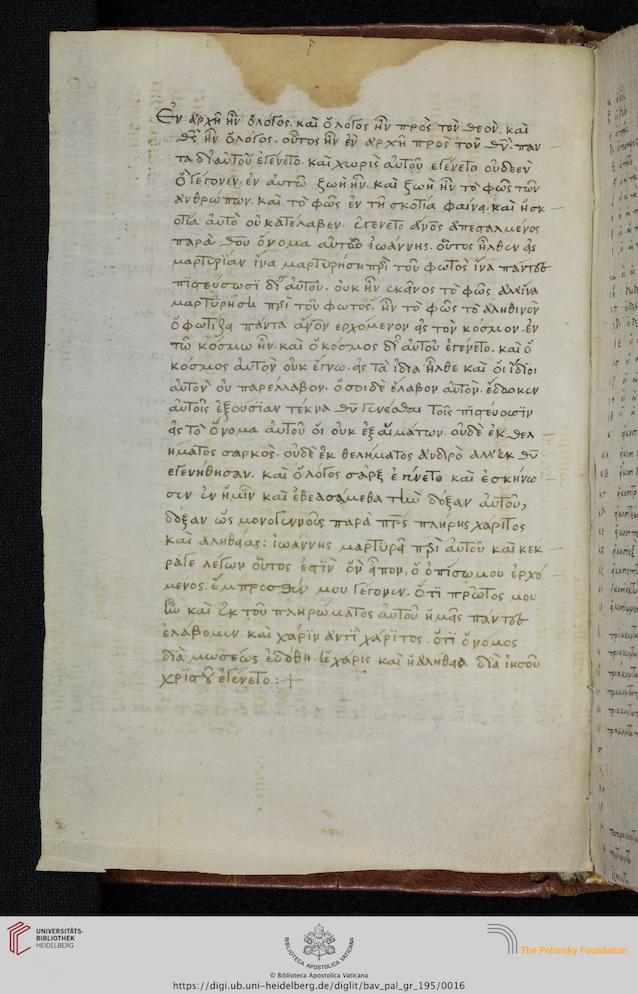 Ἐν ἀρχῆ ἦν ὁ λόγος. καὶ ὁ λόγος ἦν πρὸς τὸν θεὸν. καὶ
θς ἦν ὁ λόγος. οὗτος ἦν ἐν ἀρχῆ πρὸς τὸν θν. παν
τα δι αὐτοῦ ἐγένετο. καὶ χωρὶς αὐτοῦ εγένετο οὐδεὲν
ὃ γέγονεν. ἐν αυτῶ ζωὴ ἦν. καὶ ζωὴ ἦν τὸ φῶς τῶν
ἀνθρώπων. καὶ τὸ φῶς ἐν τῆ σκοτία φαίνει. καὶ ἡ σκ
οτία αὐτὸ οὐ κατέλαβεν. ἐγενετο ἄνος ἀπεσαλμένος
παρὰ θου ὄνομα αὐτῶ ἰωάννης. οὗτος ἦλθεν εἰς
μαρτυρΐαν ἵνα μαρτυρήση περὶ τοῦ φωτὸς ἵνα πάντες
πιστεύσωσϊ δι αὐτοῦ. οὐκ ἦν ἐκεῖνος τὸ φῶς ἀλλ ἵνα
μαρτυρήση περὶ τοῦ φωτός. ἦν τὸ φῶς τὸ ἀληθινὸν
ὃ φωτίζει πάντα ἄνον ερχόμενον εἰς τὸν κόσμον. ἐν
τῶ κόσμω ἦν. καὶ ὁ κόσμος δι αὐτοῦ ἐγένετο. καὶ ὁ
κόσμος αὐτὸν οὐκ ἔγνω. εἰς τὰ ἴδια ἦλθε καὶ οἱ ἴδϊοι
αὐτὸν οὐ παρέλαβον. ὅσοι δὲ ἔλαβον αὐτὸν. ἔδωκεν
αὐτοῖς ἐξουσΐαν τέκνα θυ γενέσθαι τοῖς πιστεύουσϊν
εἰς τὸ ὄνομα αὐτοῦ οἳ οὐκ ἐξ αἱμάτων. οὐδὲ ἐκ θελ
ήματος σαρκὸς. οὐδὲ ἐκ θελήματος ἀνδρὸς ἀλλ ἐκ θυ
εγενήθησαν. καὶ ὁ λόγος σὰρξ ἐγένετο καὶ ἐσκήνω
σεν ἐν ἡμῖν καὶ ἐθεασάμεθα τὴν δόξαν αὐτοῦ,
δόξαν ὡς μονογενοῦς παρὰ πρς πλήρης χάριτος
καὶ ἀληθείας: ἰωάννης μαρτυρεῖ περὶ αὐτοῦ καὶ κεκ
ραγε λέγων οὗτος ἐστὶν ὃν εἶπον, ὁ ὀπίσω μου ἐρχό
μενος. ἔμπροσθέν μου γέγονεν. ὅτϊ πρῶτος μου
ἦν καὶ ἐκ τοῦ πληρώματος αὐτοῦ ἡμεῖς παντες
ἐλάβομεν καὶ χάρϊν ἀντϊ χάρϊτος. ὅτϊ ὁ νομος
δϊὰ μωσέως ἐδόθη. ἡ χάρις καὶ ἡ ἀλήθεια δϊὰ ἰησοῦ
χρϊστοῦ ἐγένετο:+
UNIVERSITÄTS-
BIBLIOTHEK
HEIDELBERG
BIBLIOTECA APOSTOLICA VATICANA
The Polonsky Foundation
© Biblioteca Apostolica Vaticana
https://digi.ub.uni-heidelberg.de/diglit/bav_pal_gr_195/0016